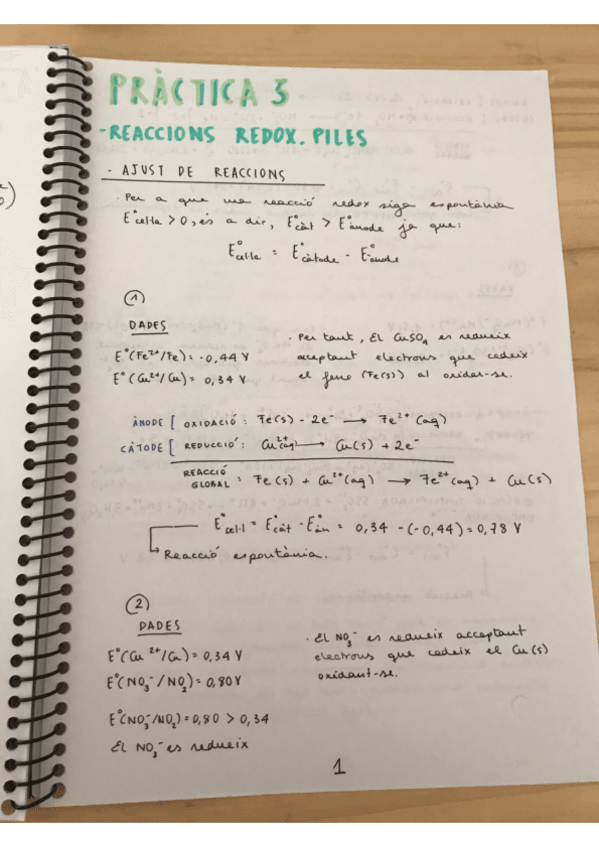 PRÀCTICA 3
-REACCIONS REDOX. PILES
- AJUST DE REACCIONS
· Per a que una reacció redox siga espontània
E°cel·la > 0, és a dir, E°càt > E°ànode ja que:
E°cel·la = E°càtode - E°ànode
①
DADES
E°(Fe²⁺/Fe) = -0,44 V
E°(Cu²⁺/Cu) = 0,34 V
· Per tant, El CuSO₄ es redueix
acceptant electrons que cedeix
el ferro (Fe(s)) al oxidar-se.
ÀNODE [ OXIDACIÓ: Fe(s) - 2e⁻ → Fe²⁺ (aq)
CÀTODE [ REDUCCIÓ: Cu²⁺(aq) → Cu(s) + 2e⁻
REACCIÓ GLOBAL: Fe(s) + Cu²⁺(aq) → Fe²⁺(aq) + Cu(s)
E°cel·l = E°càt - E°àn = 0,34 - (-0,44) = 0,78 V
Reacció espontània.
②
DADES
E°(Cu²⁺/Cu) = 0,34 V
E°(NO₃⁻/NO₂) = 0,80 V
E°(NO₃⁻/NO₂) = 0,80 > 0,34
El NO₃⁻ es redueix
· El NO₃⁻ es redueix acceptant
electrons que cedeix el Cu(s)
oxidant-se.
1